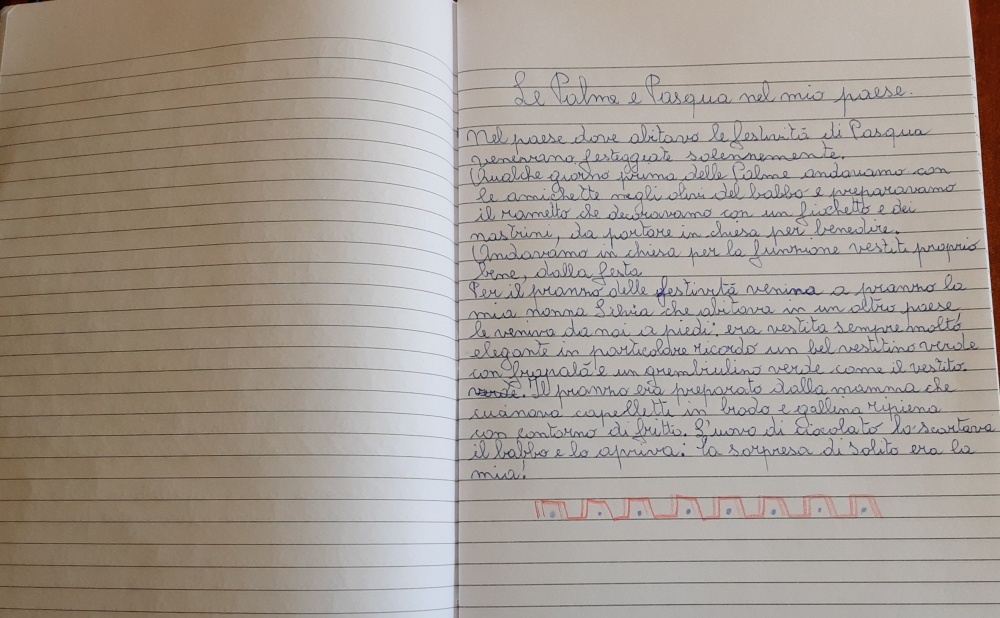 Le Palme e Pasqua nel mio paese.
Nel paese dove abitavo le festività di Pasqua
venivano festeggiate solennemente.
Qualche giorno prima delle Palme andavamo con
le amichette negli olivi del babbo e preparavamo
il rametto che decoravamo con un fiochetto e dei
nastrini, da portare in chiesa per benedire.
Andavamo in chiesa per la funzione vestiti proprio
bene, dalla festa
Per il pranzo delle festività veniva a pranzo la
mia nonna Silvia che abitava in un altro paese,
le veniva da noi a piedi: era vestita sempre molto
elegante in particolare ricordo un bel vestitino verde
con frapalà e un grembiulino verde come il vestito.
verde. Il pranzo era preparato dalla mamma che
cucinava capelletti in brodo e gallina ripiena
con contorno di fritto. L'uovo di ciocolato lo scartava
il babbo e lo apriva: la sorpresa di solito era la
mia!